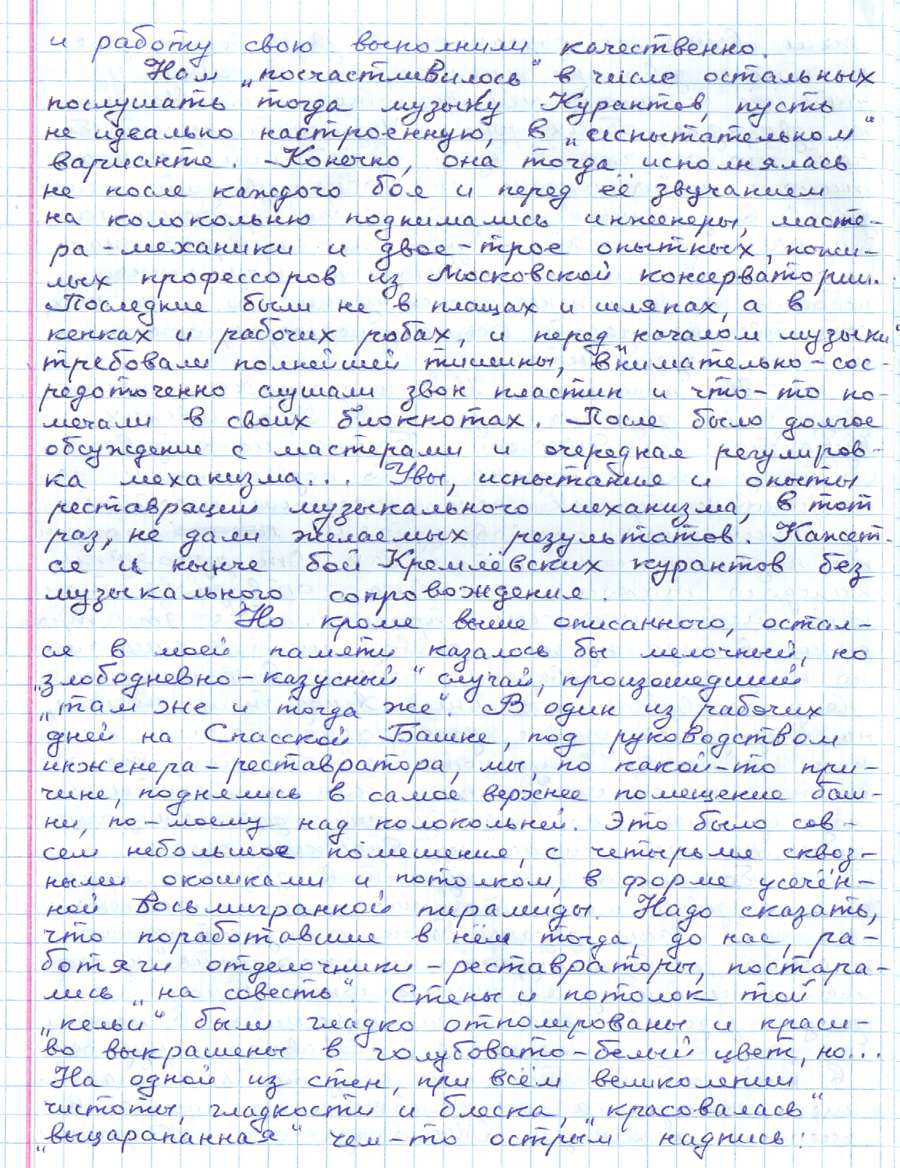 и работу свою выполнили качественно.
Нам „посчастливилось“ в числе остальных
послушать тогда музыку Курантов, пусть
не идеально настроенную, в „испытательном“
варианте. Конечно, она тогда исполнялась
не после каждого боя и перед её звучанием
на колокольню поднимались инженеры, масте-
ра-механики и двое-трое опытных, пожи-
лых профессоров из Московской консерватории.
Последние были не в плащах и шляпах, а в
кепках и рабочих робах, и перед „началом музыки“
требовали полнейшей тишины, внимательно-сос-
редоточенно слушали звон пластин и что-то по-
мечали в своих блокнотах. После было долгое
обсуждение с мастерами и очередная регулиров-
ка механизма... Увы, испытание и опыты
реставрации музыкального механизма, в тот
раз, не дали желаемых результатов. Кажет-
ся и нынче бой Кремлёвских курантов без
музыкального сопровождения.
Но кроме выше описанного, остал-
ся в моей памяти казалось бы мелочный, но
„злободневно-казусный“ случай, произошедший
„там же и тогда же“. В один из рабочих
дней на Спасской Башне, под руководством
инженера-реставратора, мы, по какой-то при-
чине, поднялись в самое верхнее помещение баш-
ни, по-моему над колокольней. Это было сов-
сем небольшое помещение, с четырьмя сквоз-
ными окошками и потолком, в форме усечён-
ной восьмигранной пирамиды. Надо сказать,
что поработавшие в нём тогда, до нас, ра-
ботяги отделочники-реставраторы, постара-
лись „на совесть“. Стены и потолок той
„кельи“ были гладко отполированы и краси-
во выкрашены в голубовато-белый цвет, но...
На одной из стен, при всём великолепии
чистоты, гладкости и блеска, „красовалась“
„выцарапанная“ чем-то острым надпись: